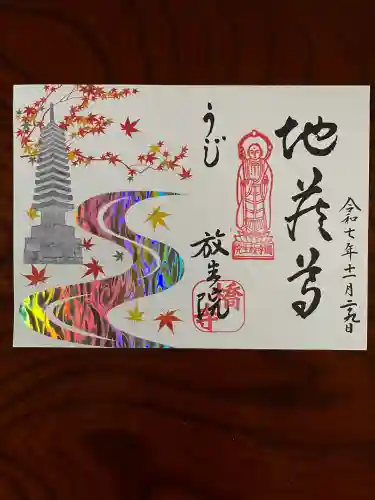 令和七年十一月二九日
地蔵尊
うじ
放生院
橋寺